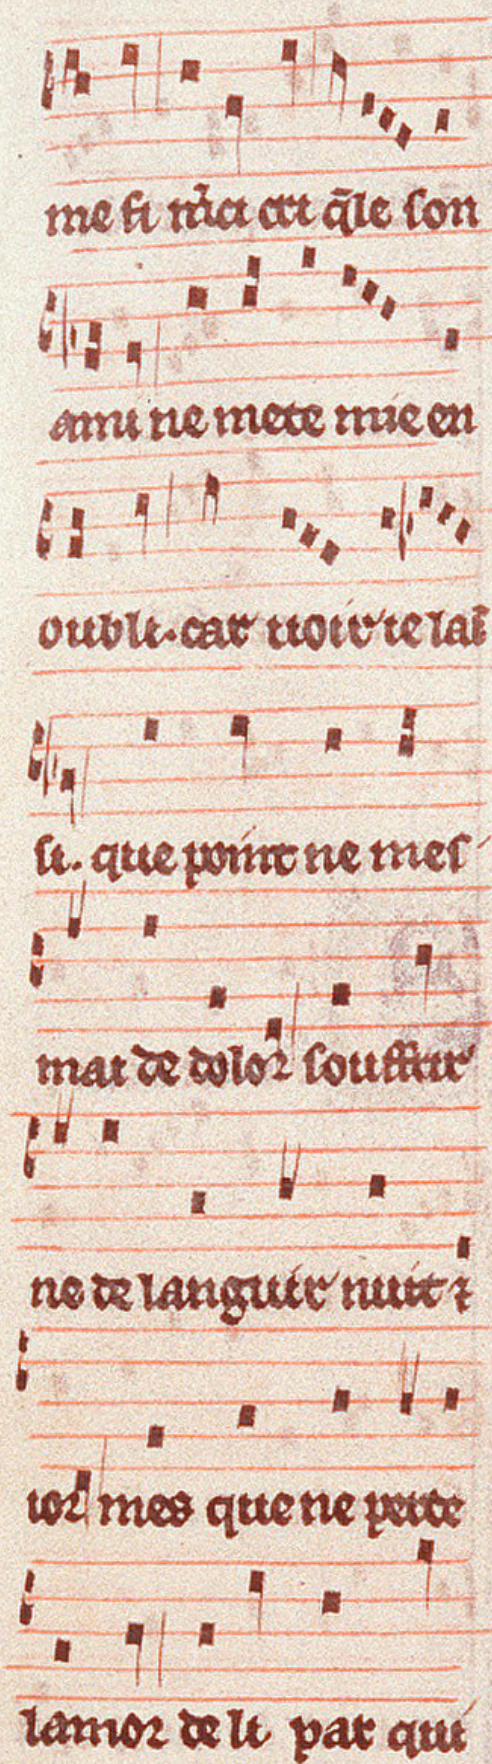 me si m̾ci crt q̄le son
ami ne mete mie en
oubli. car uoir ie lai
si. que point ne mes
mai de dolor souffrir
ne de languir nuit ⁊
ior mes que ne perte
lamor de li par qui